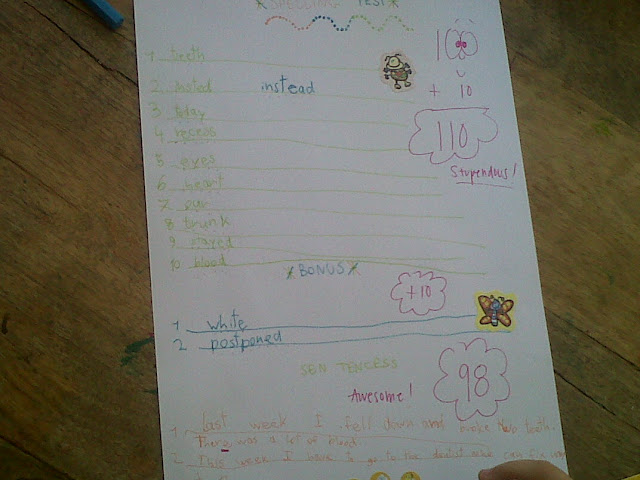 *SPELLING TEST*
1 teeth
2 insted instead
3 today
4 recess
5 eyes
6 heart
7 ear
8 trunk
9 stayed
10 blood
BONUS
1 white
2 postponed
100
+ 10
110
Stupendous!
+10
SENTENCESS
Awesome!
98
1. last week I fell down and broke two teeth.
There was a lot of blood.
2 This week I have to go to the detist who can fix